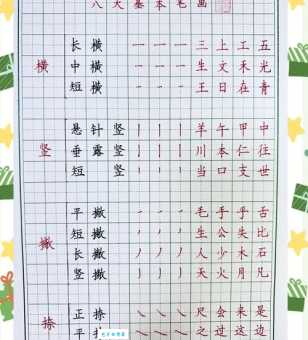 八大基本笔画
横
长横 一 一 一 三上工五
中横 一 一 一 生文禾光
短横 一 一 一 王日在青
竖
悬针竖 丨 丨 丨 羊午甲中
垂露竖 丨 丨 丨 川本仁往
短竖 丨 丨 丨 当口支世
撇
平撇 ノ ノ ノ 毛手乎舌
短撇 ノ ノ ノ 生公朱比
长撇 ノ ノ ノ 人少木石
竖撇 丿 丿 丿 天火月凡
捺
正捺 ㇏ ㇏ ㇏ 尺会来是
平捺 ㇏ ㇏ ㇏ 之过这边